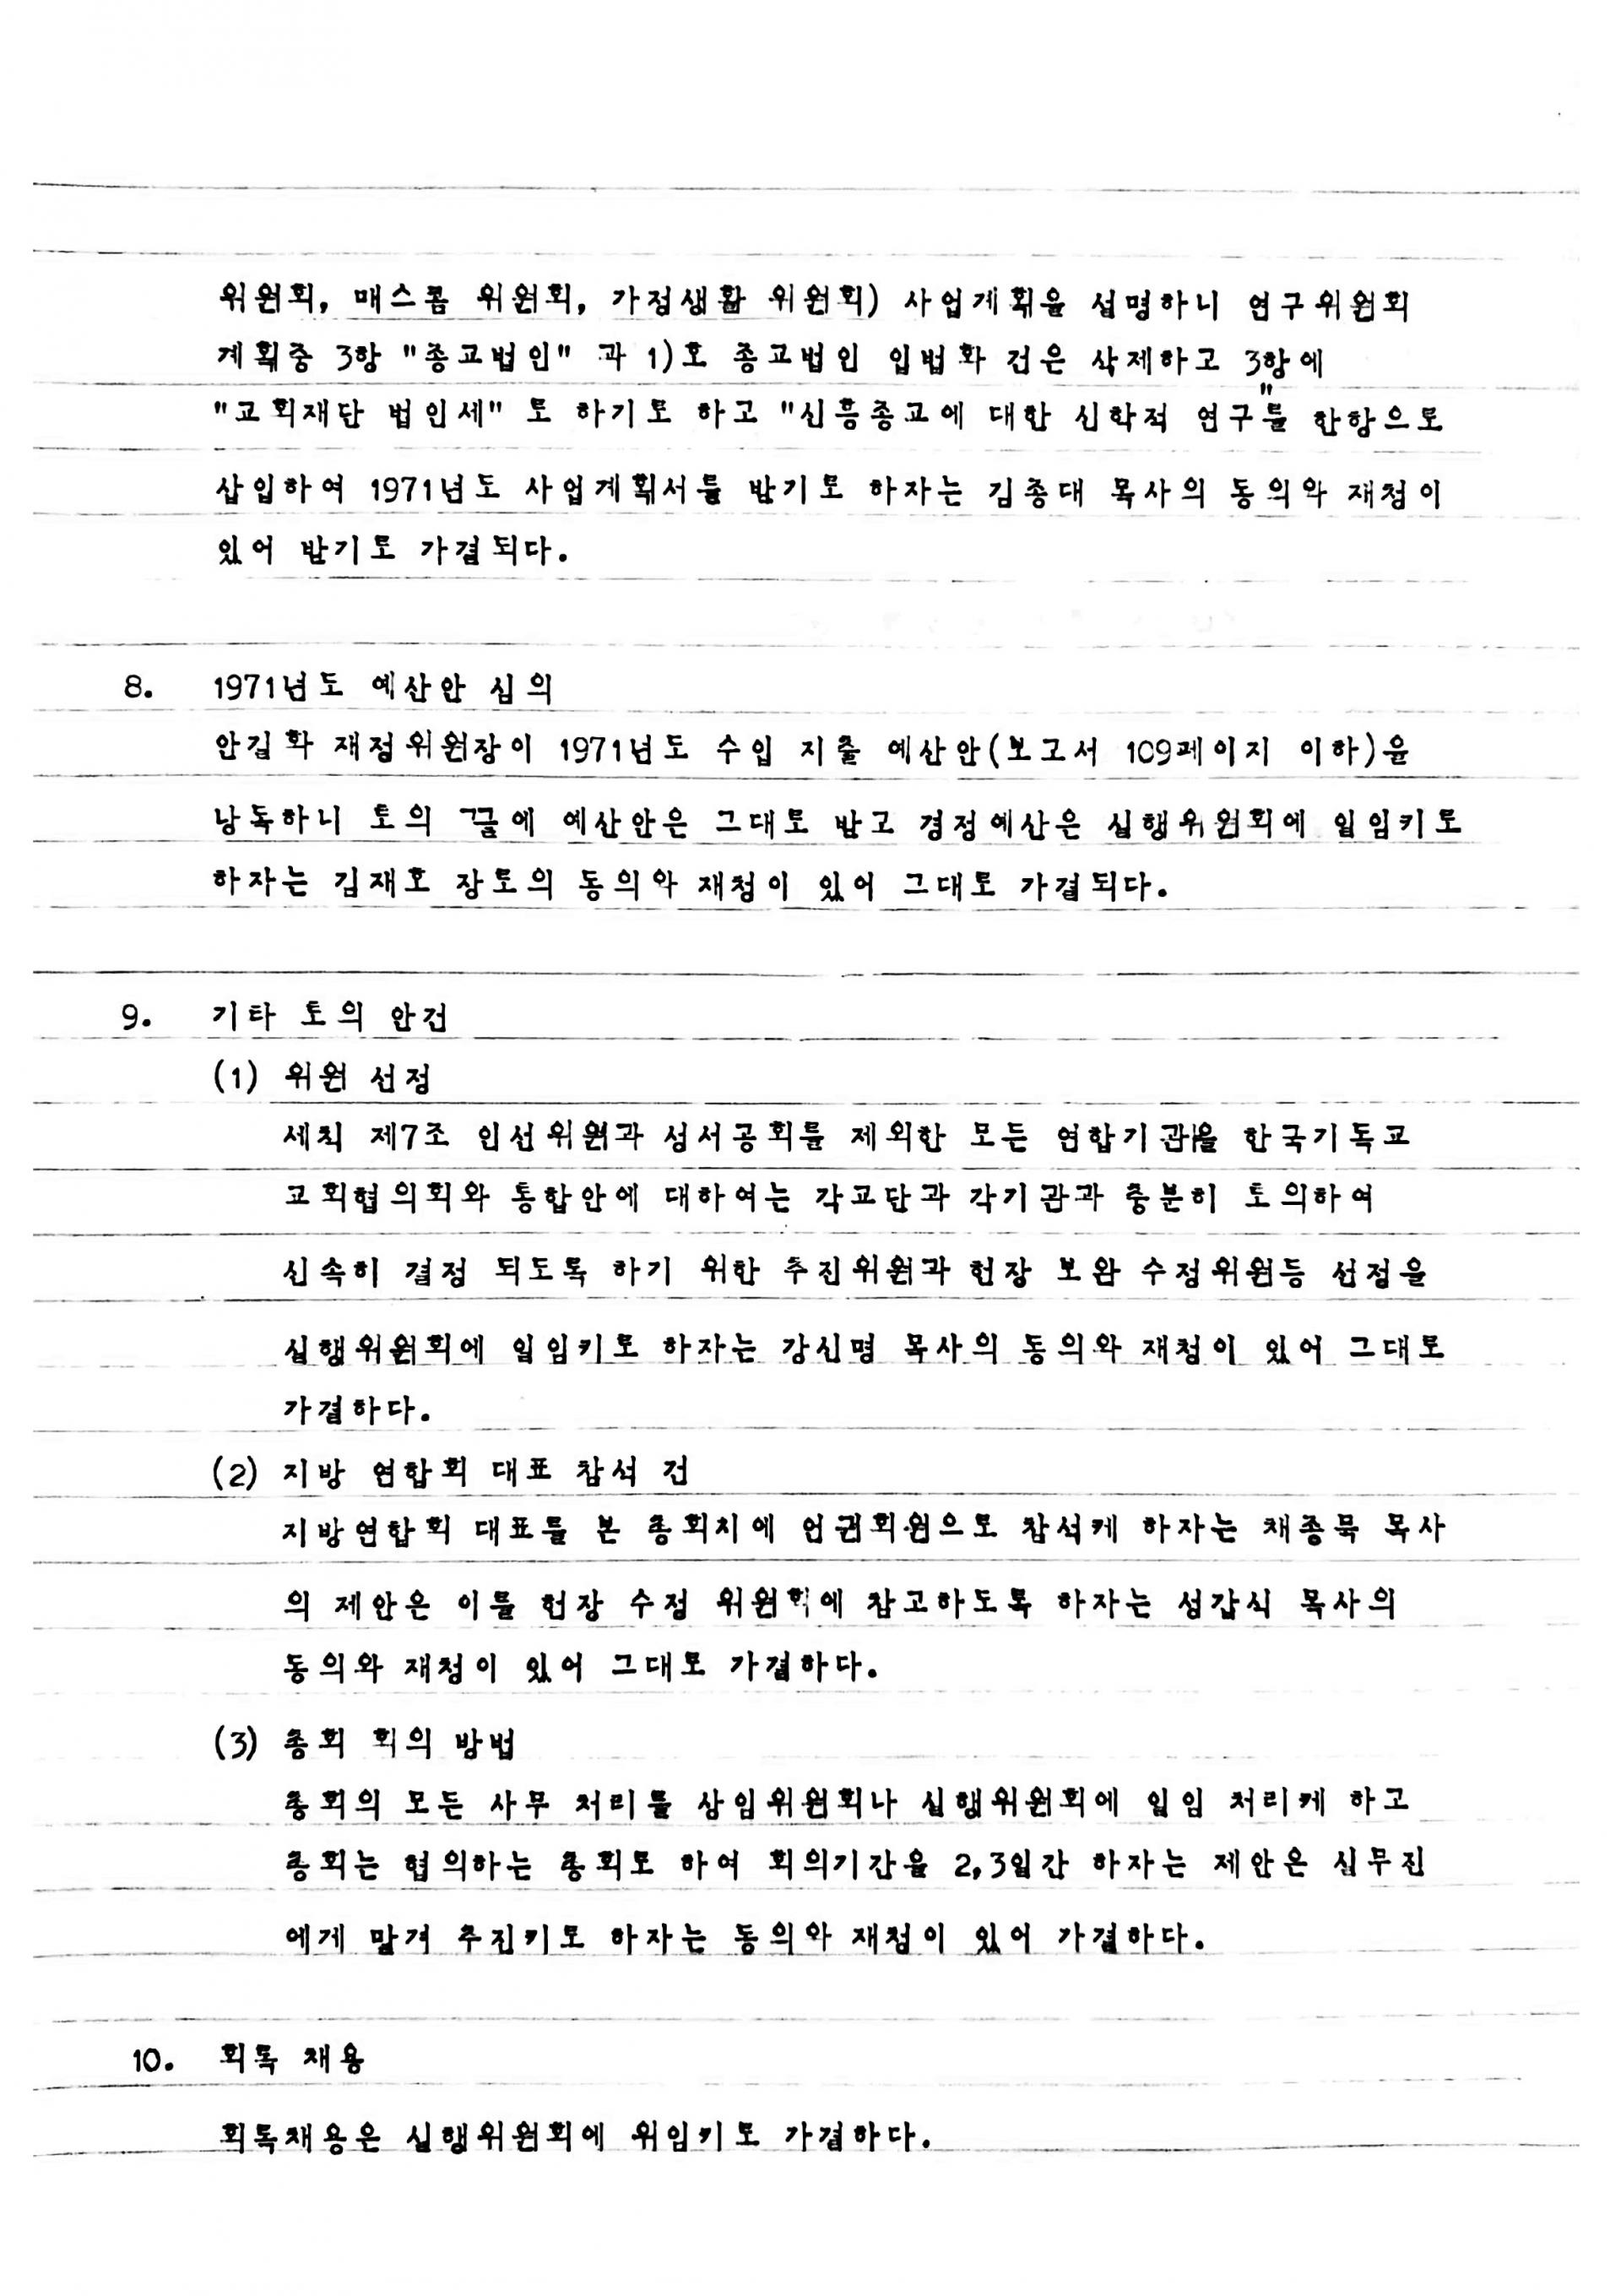 위원회, 매스콤 위원회, 가정생활 위원회) 사업계획을 설명하니 연구위원회
계획중 3항 "종교법인" 과 1)호 종교법인 입법화 건은 삭제하고 3항에
"교회재단 법인세" 로 하기로 하고 "신흥종교에 대한 신학적 연구"를 한항으로
삽입하여 1971년도 사업계획서를 받기로 하자는 김종대 목사의 동의와 재청이
있어 받기로 가결되다.
8. 1971년도 예산안 심의
안길화 재정위원장이 1971년도 수입 지출 예산안(보고서 109페이지 이하)을
낭독하니 토의 끝에 예산안은 그대로 받고 경정예산은 실행위원회에 일임키로
하자는 김재호 장로의 동의와 재청이 있어 그대로 가결되다.
9. 기타 토의 안건
(1) 위원 선정
세칙 제7조 인선위원과 성서공회를 제외한 모든 연합기관을 한국기독교
교회협의회와 통합안에 대하여는 각교단과 각기관과 충분히 토의하여
신속히 결정 되도록 하기 위한 추진위원과 헌장 보완 수정위원등 선정을
실행위원회에 일임키로 하자는 강신명 목사의 동의와 재청이 있어 그대로
가결하다.
(2) 지방 연합회 대표 참석 건
지방연합회 대표를 본 총회시에 언권회원으로 참석케 하자는 채종묵 목사
의 제안은 이를 헌장 수정 위원회에 참고하도록 하자는 성갑식 목사의
동의와 재청이 있어 그대로 가결하다.
(3) 총회 회의 방법
총회의 모든 사무 처리를 상임위원회나 실행위원회에 일임 처리케 하고
총회는 협의하는 총회로 하여 회의기간을 2,3일간 하자는 제안은 실무진
에게 맡겨 추진키로 하자는 동의와 재청이 있어 가결하다.
10. 회록 채용
회록채용은 실행위원회에 위임키로 가결하다.